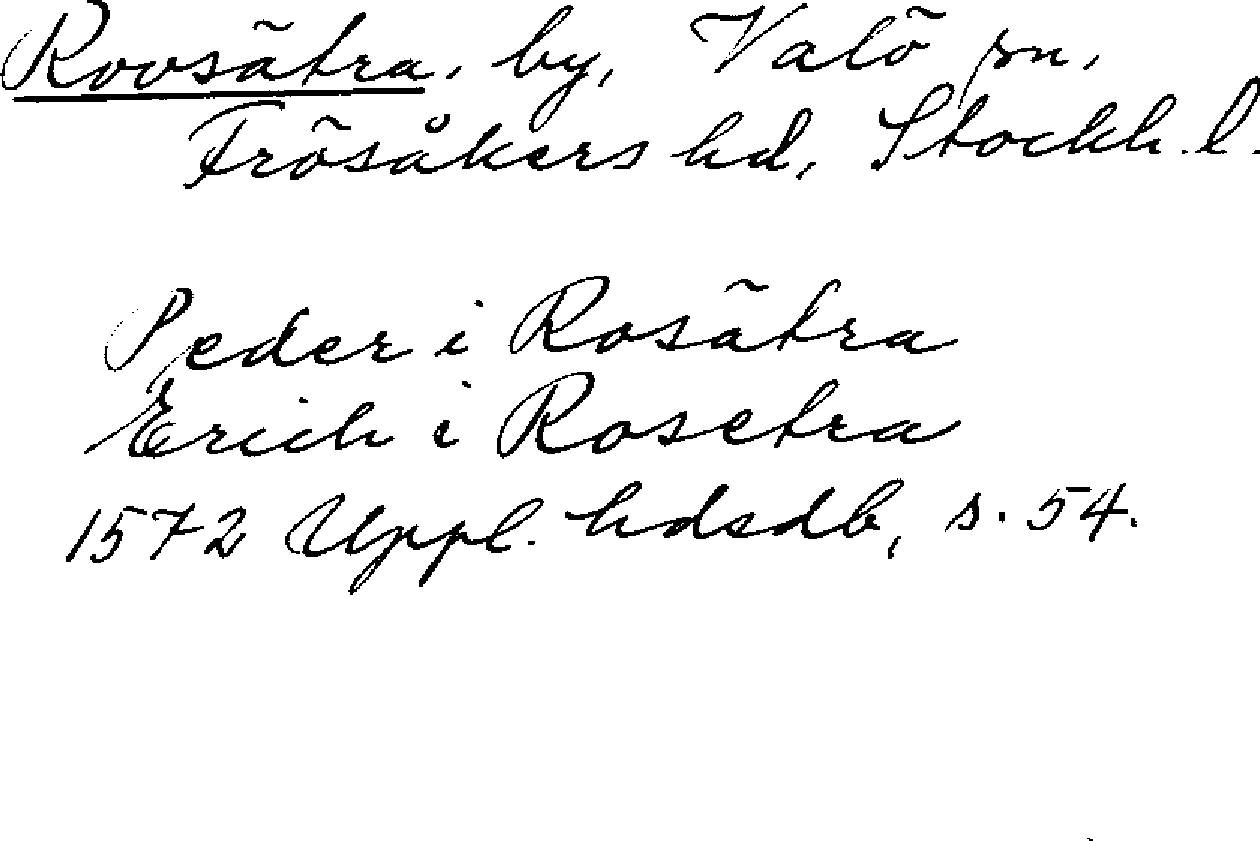 Rovsätra, by, Valö sn,
Frösåkers hd, Stockh. l.
Peder i Rosätra
Erich i Rosetra
1572 Uppl. hdsdb, s. 54.